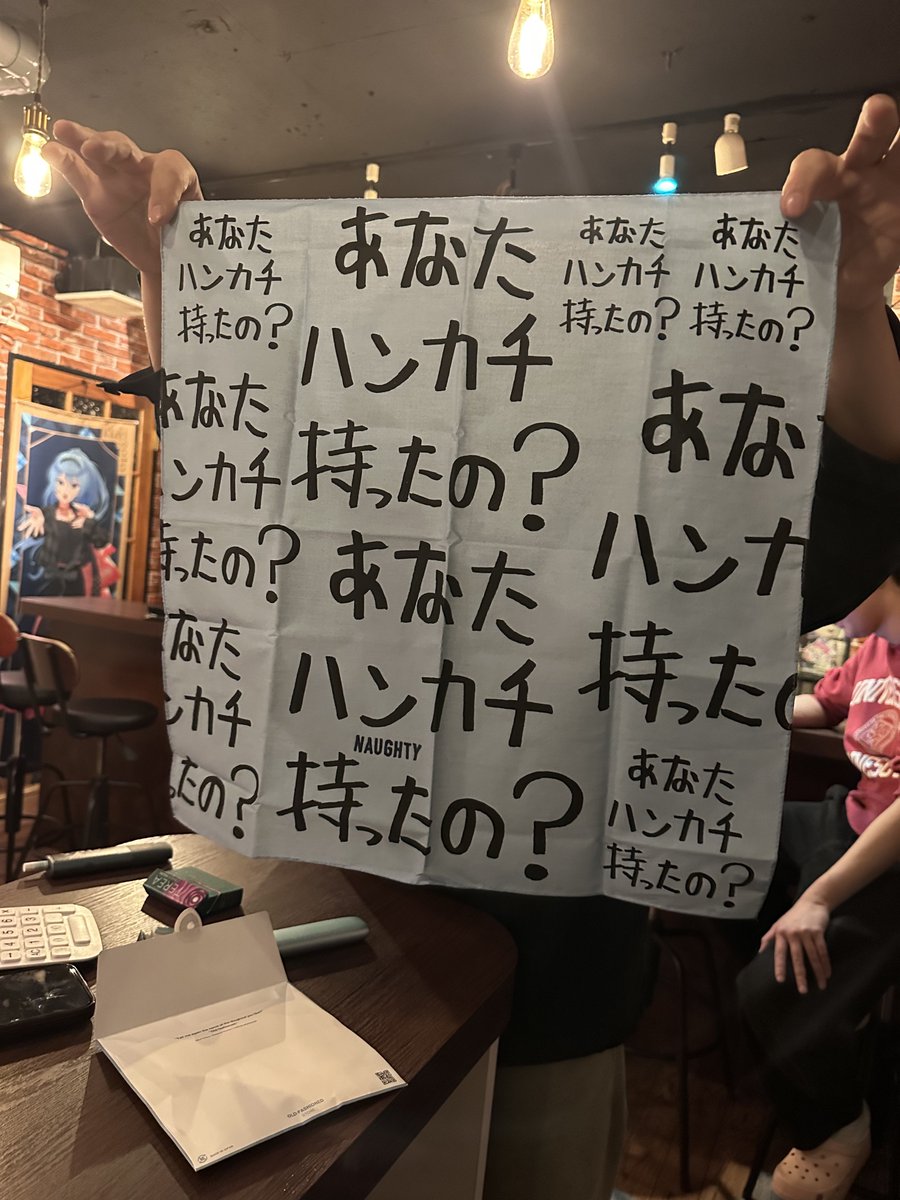 あなた
ハンカチ
持ったの?
あなた
ハンカチ
持ったの?
あなた
ハンカチ
持ったの?
あなた
ハンカチ
持ったの?
あなた
ンカチ
持ったの?
あなた
ハンカチ
NAUGHTY
持ったの?
あなた
ハンカ
持ったの
なた
ンカチ
ったの?
あなた
ハンカチ
持ったの?
TEREA
OLD-FASHIONED
STORE